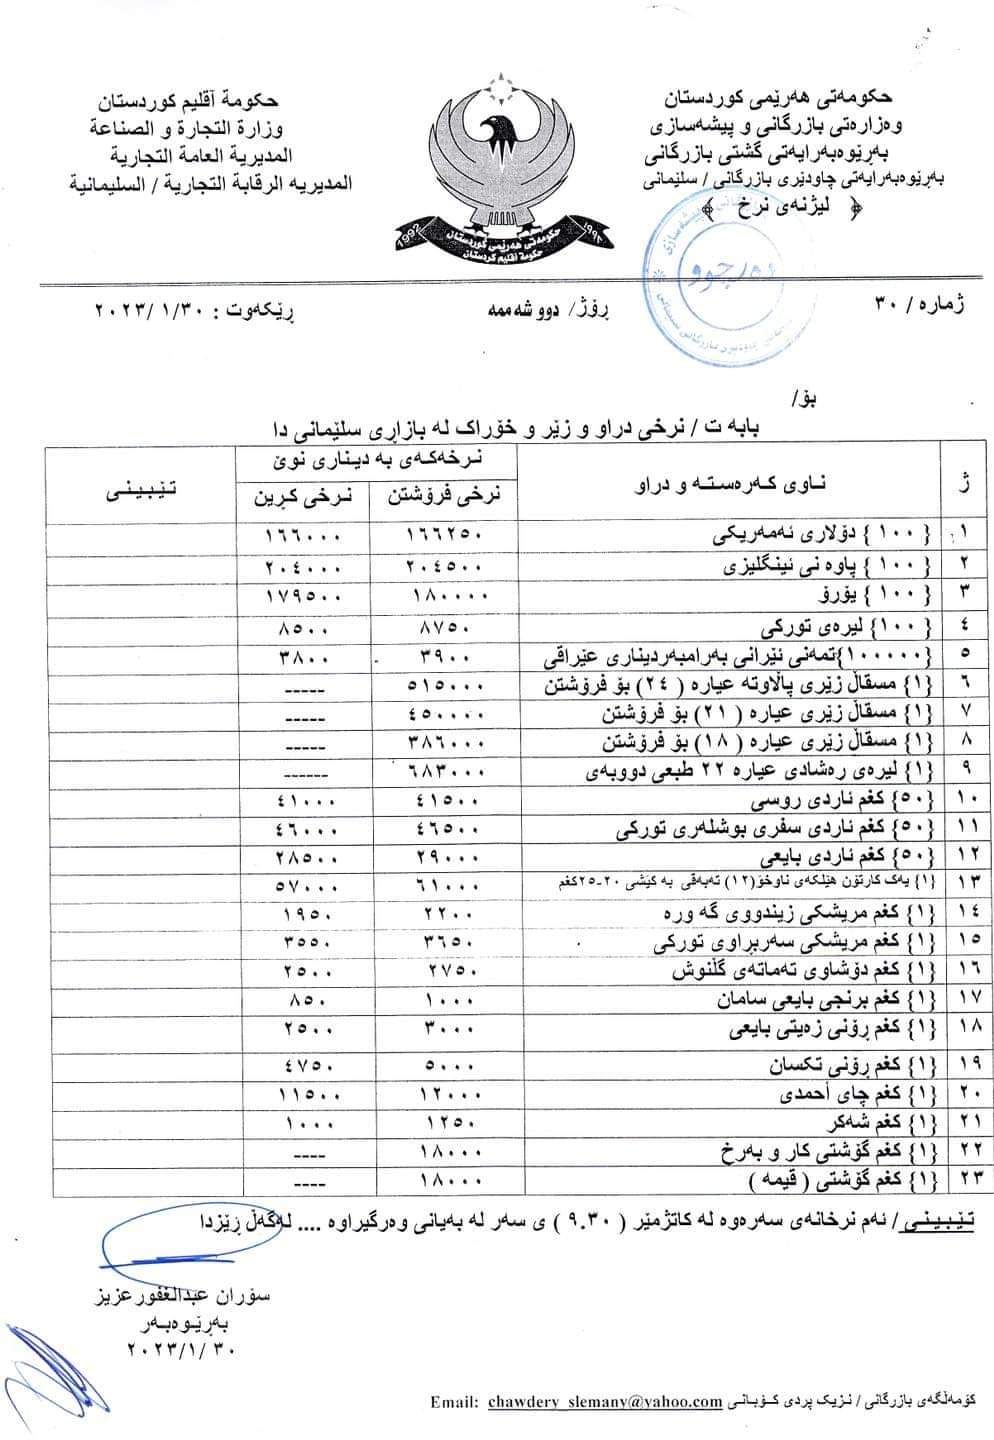 حكومەتی هەرێمی كوردستان
وەزارەتی بازرگانی و پیشەسازی
بەڕێوەبەرایەتی گشتی بازرگانی
بەڕێوەبەرایەتی چاودێری بازرگانی / سلێمانی
﴿ لیژنەی نرخ ﴾
حكومة آقليم كوردستان
وزارة التجارة و الصناعة
المديرية العامة التجارية
المديريه الرقابة التجارية / السليمانية
1992 حكومەتی هەرێمی كوردستان ١٩٩٢
حكومة أقليم كردستان
دەرچوو
ژمارە / ٣٠ ڕۆژ/ دوو شەممە ڕێكەوت : ٣٠ /١ /٢٠٢٣
بۆ/
بابە ت / نرخی دراو و زێڕ و خۆراك لە بازاڕی سلێمانی دا
ژ ناوی كەرەستە و دراو نرخەكەی بە دیناری نوێ تێبینی
نرخی فرۆشتن نرخی كڕین
١. { ١٠٠ } دۆلاری ئەمەریكی ١٦٦٢٥٠ ١٦٦٠٠٠
٢ { ١٠٠ } پاوە نی ئینگلیزی ٢٠٤٥٠٠ ٢٠٤٠٠٠
٣ { ١٠٠ } یۆرۆ ١٨٠٠٠٠ ١٧٩٥٠٠
٤ { ١٠٠} لیرەی توركی ٨٧٥٠ ٨٥٠٠
٥ {١٠٠٠٠٠}تمەنی ئێرانی بەرامبەردیناری عێراقی ٣٩٠٠ ٣٨٠٠
٦ {١} مسقاڵ زێری پاڵاوتە عیارە ( ٢٤) بۆ فرۆشتن ٥١٥٠٠٠ -----
٧ {١} مسقاڵ زێری عیارە ( ٢١) بۆ فرۆشتن ٤٥٠٠٠٠ -----
٨ {١} مسقاڵ زێری عیارە ( ١٨) بۆ فرۆشتن ٣٨٦٠٠٠ -----
٩ {١} لیرەی رەشادی عیارە ٢٢ طبعی دووبەی ٦٨٣٠٠٠ ------
١٠ {٥٠} كغم ئاردی روسی ٤١٥٠٠ ٤١٠٠٠
١١ {٥٠} كغم ئاردی سفری بوشلەری توركی ٤٦٥٠٠ ٤٦٠٠٠
١٢ {٥٠} كغم ئاردی بایعی ٢٩٠٠٠ ٢٨٥٠٠
١٣ {١} یەك كارتۆن هێلكەی ناوخۆ(١٢) تەبەقی بە كێشی ٢٠-٢٥كغم ٦١٠٠٠ ٥٧٠٠٠
١٤ {١} كغم مریشكی زیندووی گە ورە ٢٢٠٠ ١٩٥٠
١٥ {١} كغم مریشكی سەربراوی توركی ٣٦٥٠ ٣٥٥٠
١٦ {١} كغم دۆشاوی تەماتەی گڵنوش ٢٧٥٠ ٢٥٠٠
١٧ {١} كغم برنجی بایعی سامان ١٠٠٠ ٨٥٠
١٨ {١} كغم ڕۆنی زەیتی بایعی ٣٠٠٠ ٢٥٠٠
١٩ {١} كغم ڕۆنی تكسان ٥٠٠٠ ٤٧٥٠
٢٠ {١} كغم چای أحمدی ١٢٠٠٠ ١١٥٠٠
٢١ {١} كغم شەكر ١٢٥٠ ١٠٠٠
٢٢ {١} كغم گۆشتی كار و بەرخ ١٨٠٠٠ ----
٢٣ {١} كغم گۆشتی ( قیمە ) ١٨٠٠٠ ----
تێبینی / ئەم نرخانەی سەرەوە لە كاتژمێر ( ٩.٣٠ ) ی سەر لە بەیانی وەرگیراوە .... لەگەڵ ڕێزدا
سۆران عبدالغفورعزیز
بەڕێوەبەر
٣٠ /١/٢٠٢٣
كۆمەڵگەی بازرگانی / نزیك پردی كۆبانی Email: chawdery_slemany@yahoo.com